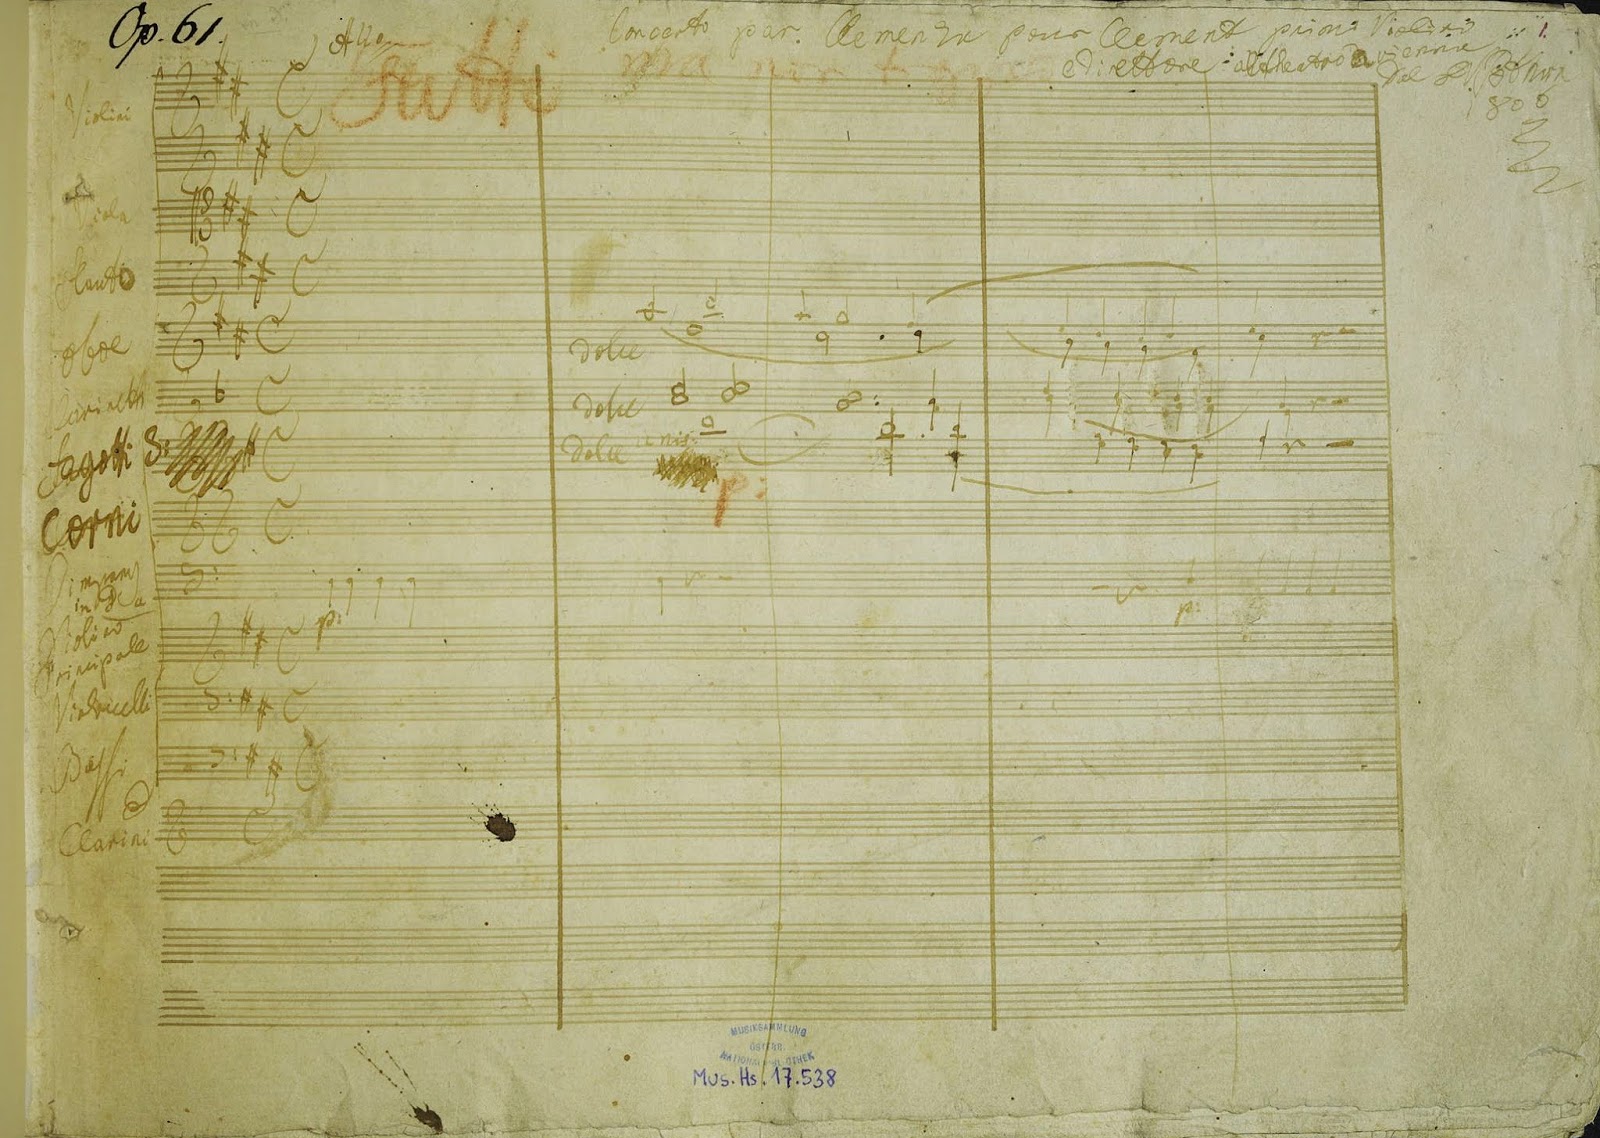 Op. 61.
Allo
Concerto par Clemenza pour Clement primo Violino
1.
Tutti
ma non t
e Direttore al theatro a vienne
Dal
Violini
Viola
flauto
oboe
dolce
Clarinetti
dolce
fagotti
dolce
unis:
p:
Corni
Timpani
in D a
p:
p:
Violino
principale
Violoncelli
Bassi
Clarini
MUSIKSAMMLUNG
ÖSTERR.
NATIONALBIBLIOTHEK
Mus. Hs. 17.538